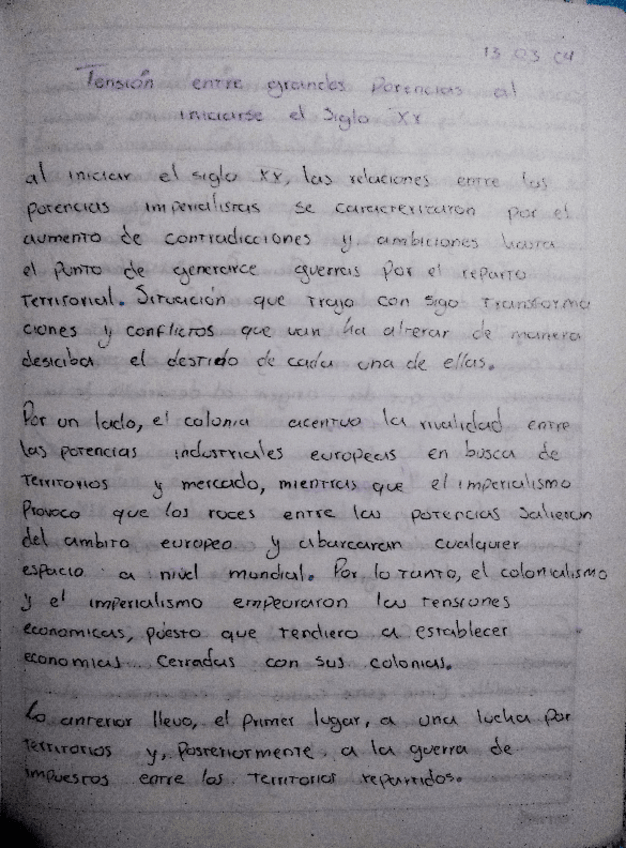 13 03 04
Tensión entre grandes Potencias al
iniciarse el Siglo XX
al iniciar el siglo XX, las relaciones entre las
potencias imperialistas se caracterizaron por el
aumento de contradicciones y ambiciones hasta
el punto de generarce guerras por el reparto
territorial. Situación que trajo con sigo transforma
ciones y conflictos que van ha alterar de manera
desiciba el destido de cada una de ellas.
Por un lado, el colonia acentuo la rivalidad entre
las potencias industriales europeas en busca de
territorios y mercado, mientras que el imperialismo
Provoco que los roces entre las potencias salieran
del ambito europeo y abarcaran cualquier
espacio a nivel mundial. Por lo tanto, el colonialismo
y el imperialismo empeoraron las tensiones
economicas, puesto que tendiero a establecer
economias cerradas con sus colonias.
Lo anterior llevo, el primer lugar, a una lucha por
territorios y, posteriormente, a la guerra de
impuestos entre los territorios repartidos.